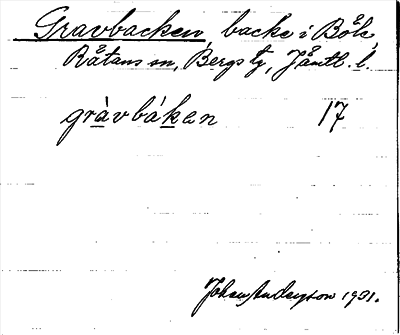 Gravbacken, backe i Böle,
Råtans sn, Bergs tg, Jämtl. l.
gràvbáken 17
Johan Anderzson 1931.